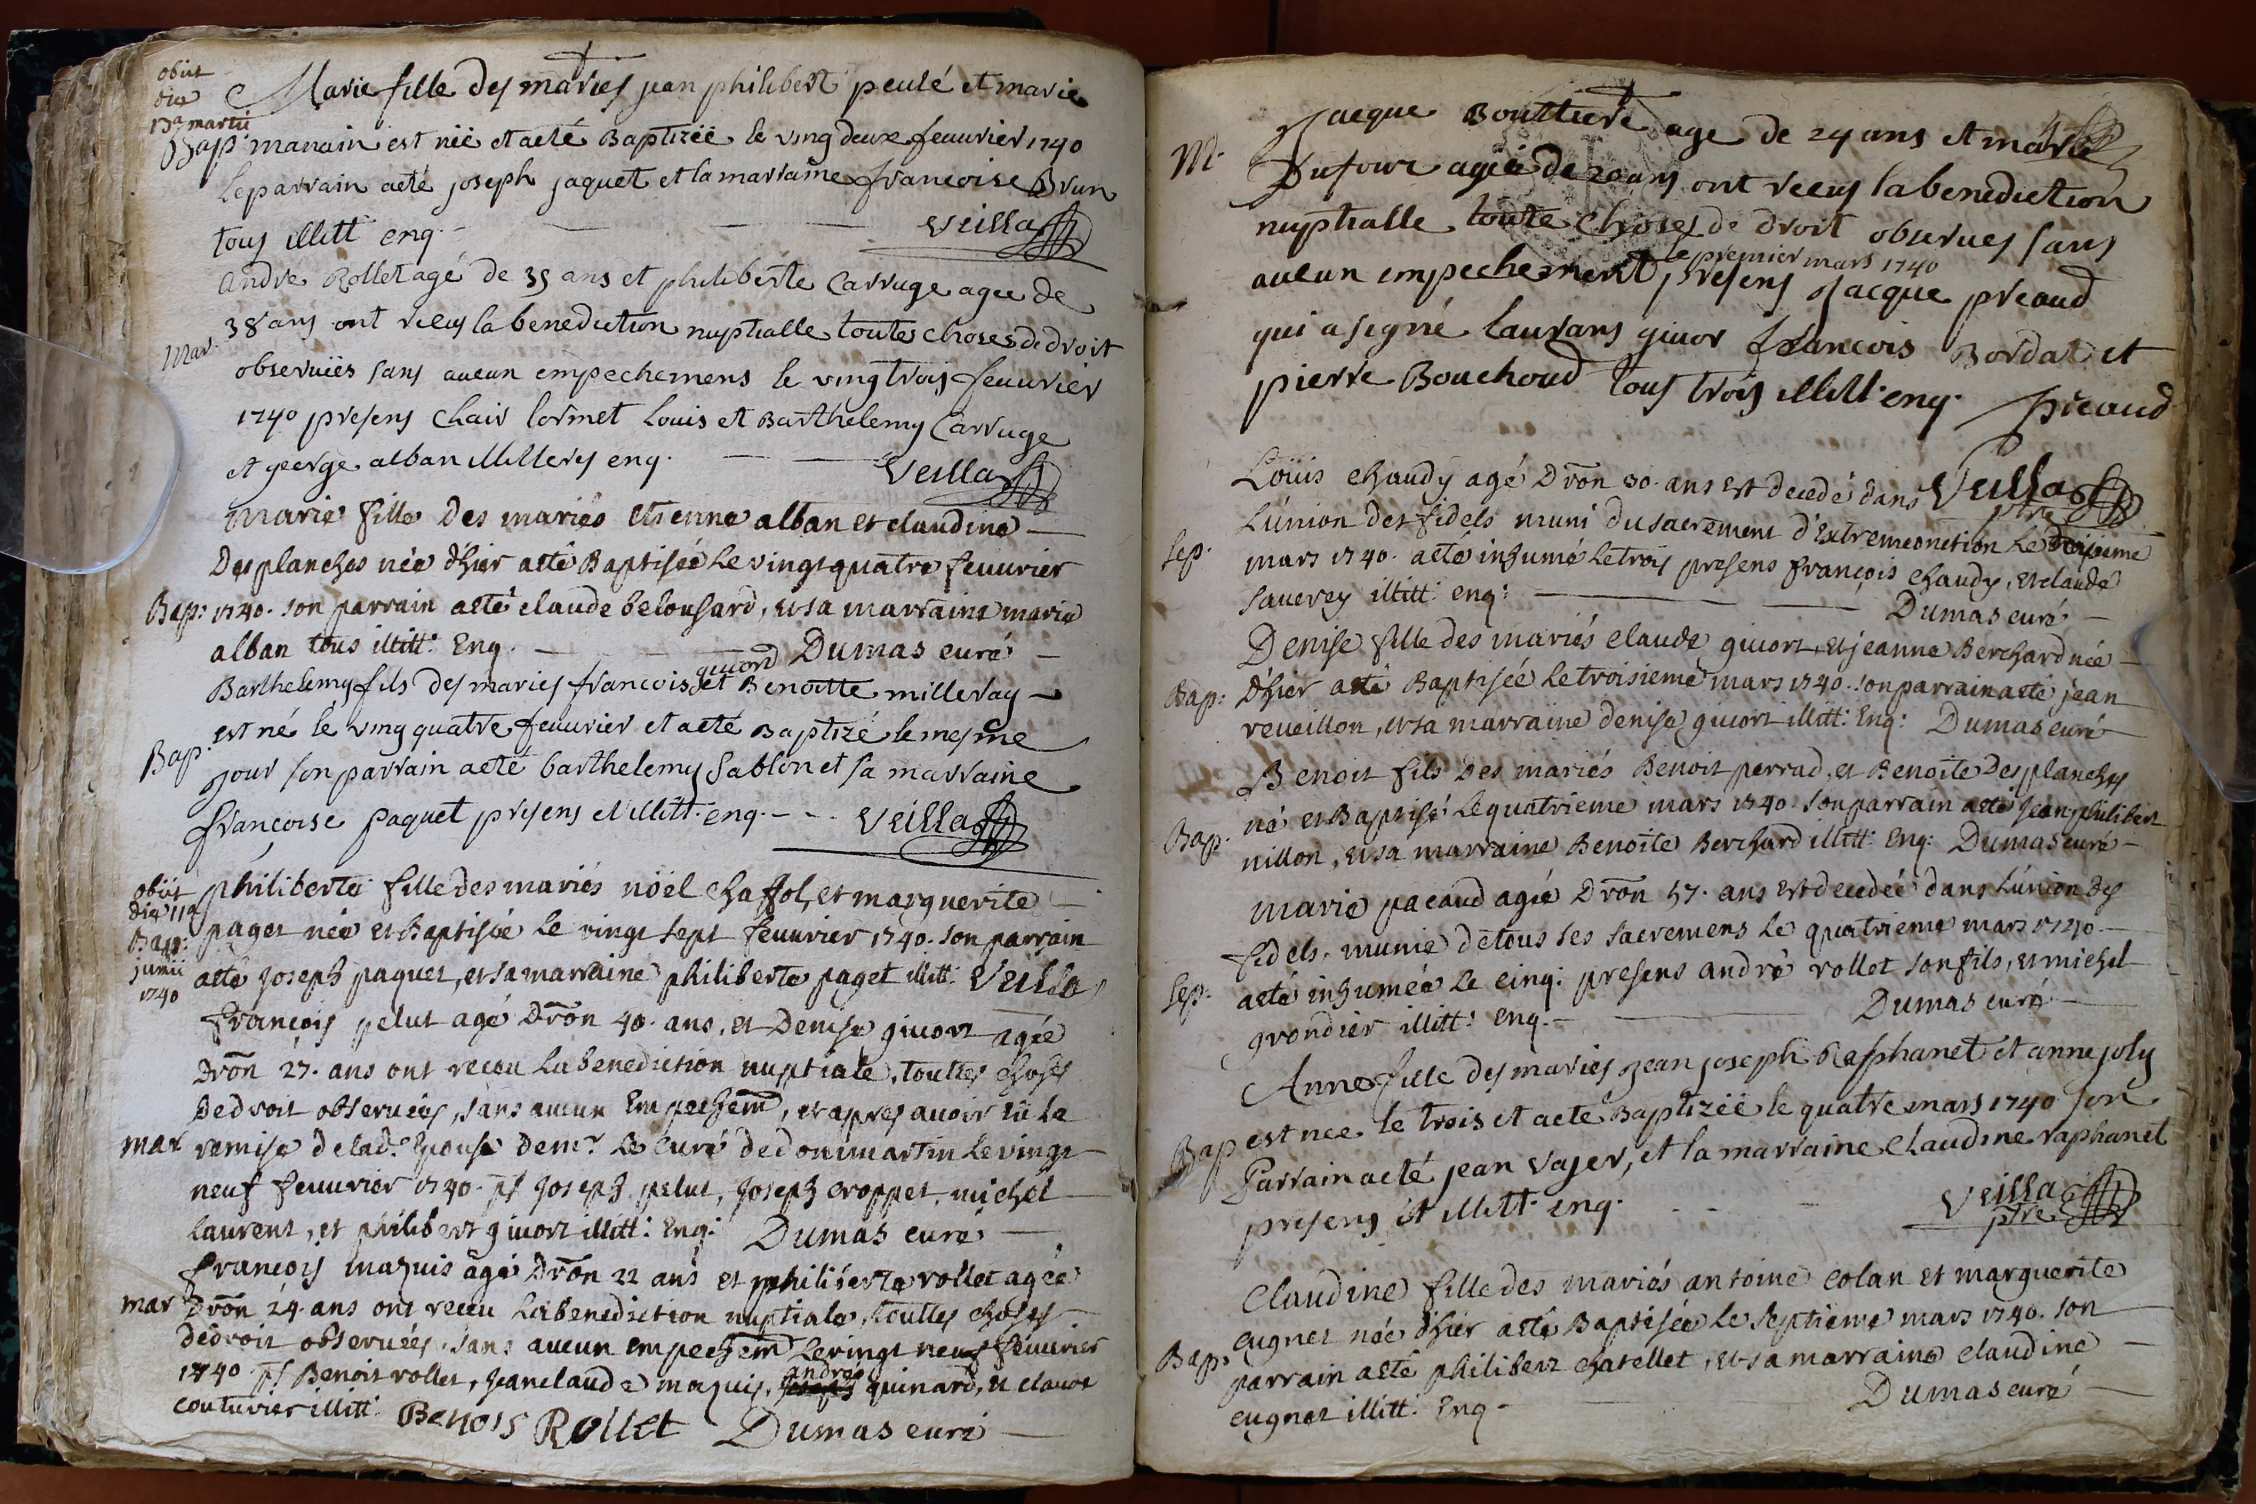 obiit
die
13a martii
Marie fille des maries jean philibert peulé et marie
Bap. manain est née et aeté Baptizée le ving deux feuurier 1740
le parrain aeté joseph jaquet et la marraine francoise Brun
tous illitt enq. Veilla
andre Rollet agé de 35 ans et philiberte Carruge agee de
38 ans ont reçus la benediction nuptialle toutes choses de droit
Mar.
observées sans aucun empechemens le ving trois feuurier
1740 presens Clair lormet Louis et Barthelemy Carruge
et george alban illilleres enq. Veilla
marie fille des mariés etienne alban et claudine
Desplanches née d'hier aeté Baptisée le vingt quatre feuurier
Bap: 1740. son parrain aeté claude belousard, et sa marraine marie
alban tous illitt: Enq. Dumas curé
givord
Barthelemy fils des maries francois et Benoitte milleray
est né le ving quatre feuurier et aeté Baptizé le mesme
Bap.
jour son parrain aeté barthelemy Sablon et sa marraine
françoise paquet presens et illitt. enq. Veilla
obiit
die 11a
philiberte fille des mariés nöel chaffol, et marguerite
Bap: paget née et Baptisée le vingt sept feuurier 1740. son parrain
junii
1740
aeté joseph paquet, et sa marraine philiberte paget illitt: Veilla
françois pelut agé Dron 40. ans, et Denise givort agée
Dron 27. ans ont receu la benediction nuptiale, touttes choses
De droit observées, sans aucun Empechem, et apres avoir vü la
mar remise de lad. Epouse de mr. le curé de dommartin le vingt
neuf feuurier 1740. ps joseph pelut, joseph croppet, michel
laurent, et philibert givort illitt: Enq: Dumas curé
françois maquis âgé Dron 22 ans et philiberte rollet agée
mar Dron 24. ans ont receu la benediction nuptiale, touttes choses
de droit observées, sans aucun empechem le vingt neuf feuurier
andré
1740 ps Benoit rollet, jean claude maquis, guinard, et claude
couturier illitt: Benois Rollet Dumas curé
Jacque Bouttiere age de 24 ans et marie
M. Dufour agée de 20 ans ont reçus la benediction
nuptialle toute choses de droit observes sans
le premier mars 1740
aucun empechement, presens Jacque preaud
qui a signé laurans givor francois Bordat et
pierre Bouchoud tous trois illitt. enq. preaud
Veilla ptre
Loüis chaudy agé Dron 30. ans est decedé dans
L'union des fidels muni du sacrement d'Extremeonction le
Sep.
mars 1740. aeté inhumé le trois presens françois chaudy, et claude
sauerey illitt: enq: Dumas curé
Denise fille des mariés claude givort, et jeanne Berchard née
Bap: d'hier aeté Baptisée le troisieme mars 1740. son parrain aeté jean
reueillon, et sa marraine denise givort illitt: Enq: Dumas curé
Benoit fils des mariés Benoit perrad, et Benoite Desplanches
né et Baptisé le quatrieme mars 1740. son parrain aeté jean philibert
Bap.
nillon, et sa marraine Benoite Berchard illitt: Enq: Dumas curé
marie pacaud agée Dron 57. ans est decedée dans l'union des
fidels, munie de tous ses sacremens le quatrieme mars 1740.
Sep. aeté inhumée le cinq: presens andré rollet son fils, et michel
grondier illitt: enq. Dumas curé
Anne fille des maries jean joseph Raphanet et anne joly
Bap est nee le trois et aeté Baptizée le quatre mars 1740 son
Parrain aeté jean vajer, et la marraine Claudine raphanet
presens et illitt. enq. Veilla
ptre
Claudine fille des mariés antoine colan et marguerite
cugnet née d'hier aeté Baptisée le septieme mars 1740. son
Bap: parrain aeté philibert chatellet, et sa marraine claudine
cugnet illitt: Enq. Dumas curé